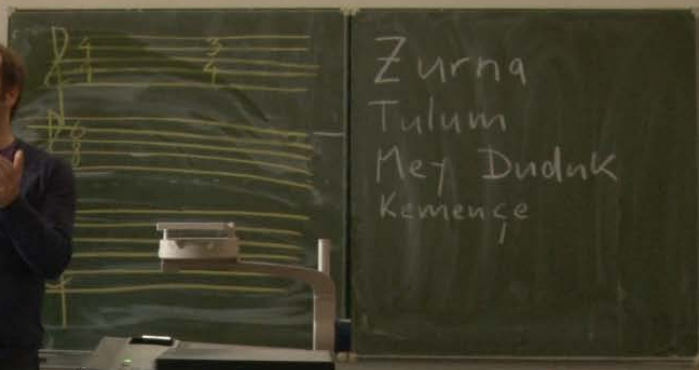 4 3
4 4
6
8
Zurna
Tulum
Mey Duduk
Kemençe